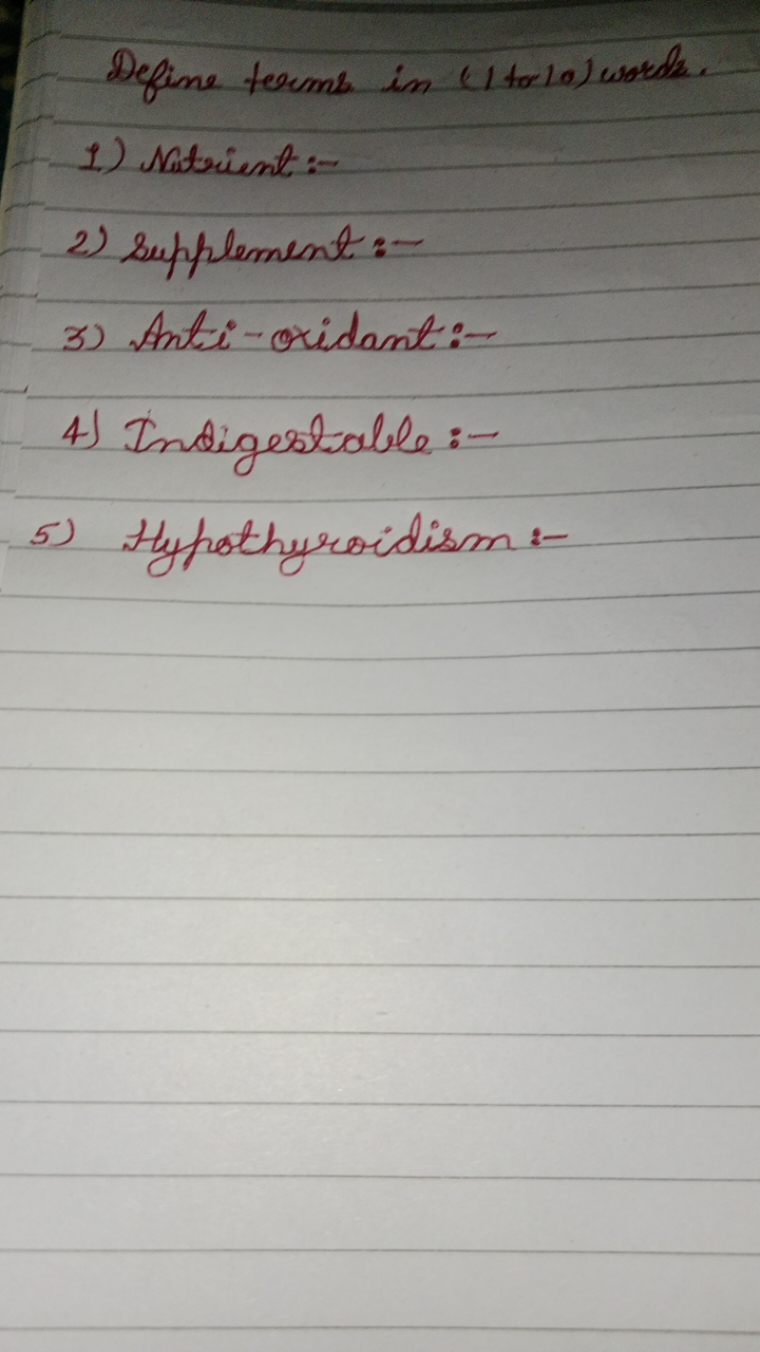 Define terms in (1 to 10) words.
1) Nutrient :-
2) Supplement :-
3) Anti-oxidant :-
4) Indigestable :-
5) Hypothyroidism :-